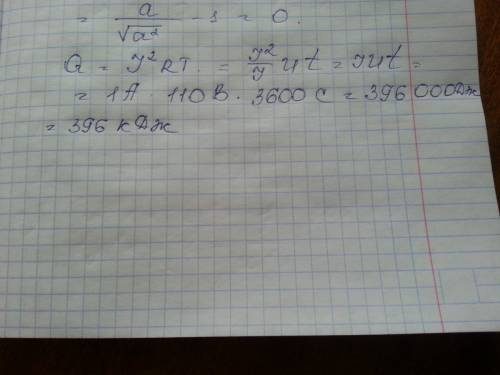 = a/√a² - 1 = 0.
Q = I²RT. = I²/I Ut = IUt =
= 1А · 110 В · 3600 С = 396 000 Дж
= 396 кДж